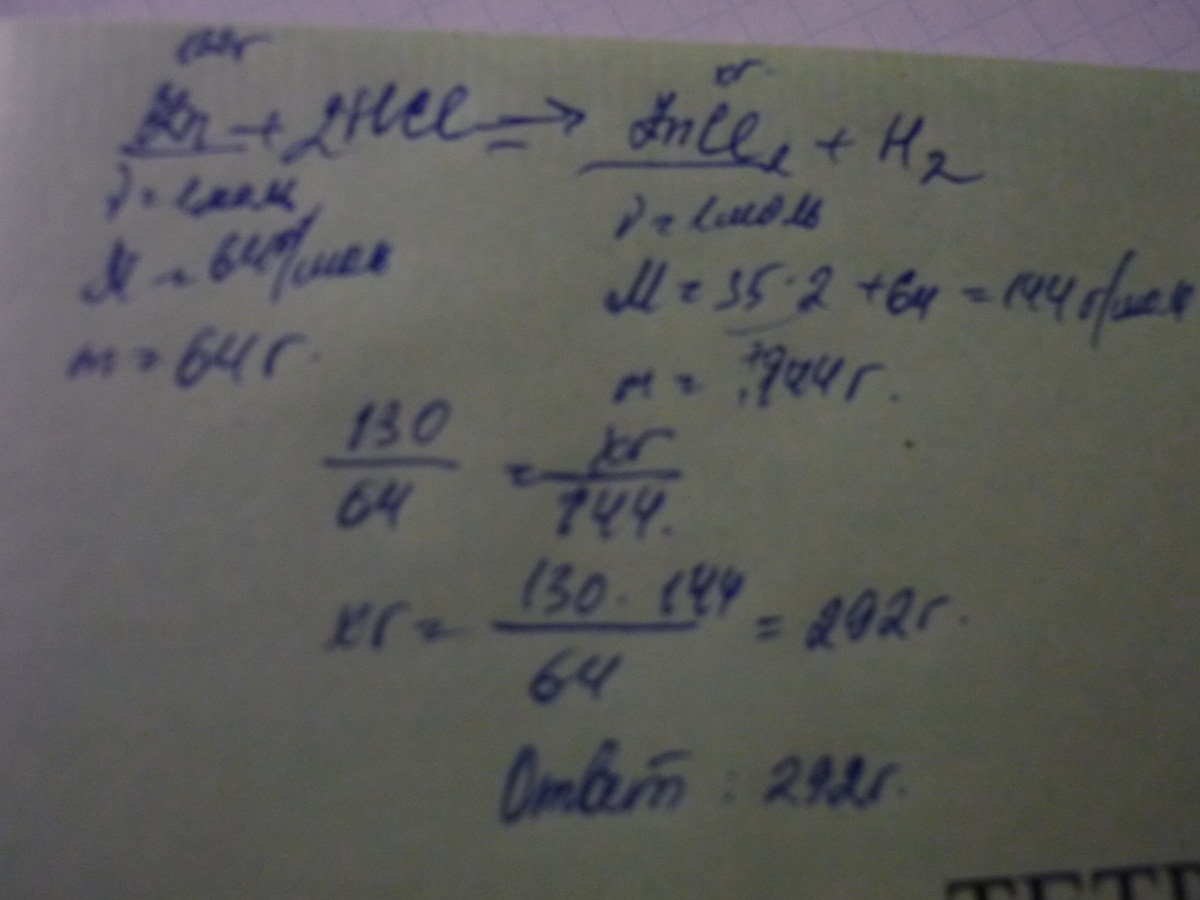 130г xг
Zn + 2HCl → ZnCl₂ + H₂
ν = 1моль ν = 1моль
M = 64г/мол M = 35·2 + 64 = 144г/мол
m = 64г. m = 144г.
130/64 = xг/144.
xг = 130·144/64 = 292г.
Ответ: 292г.